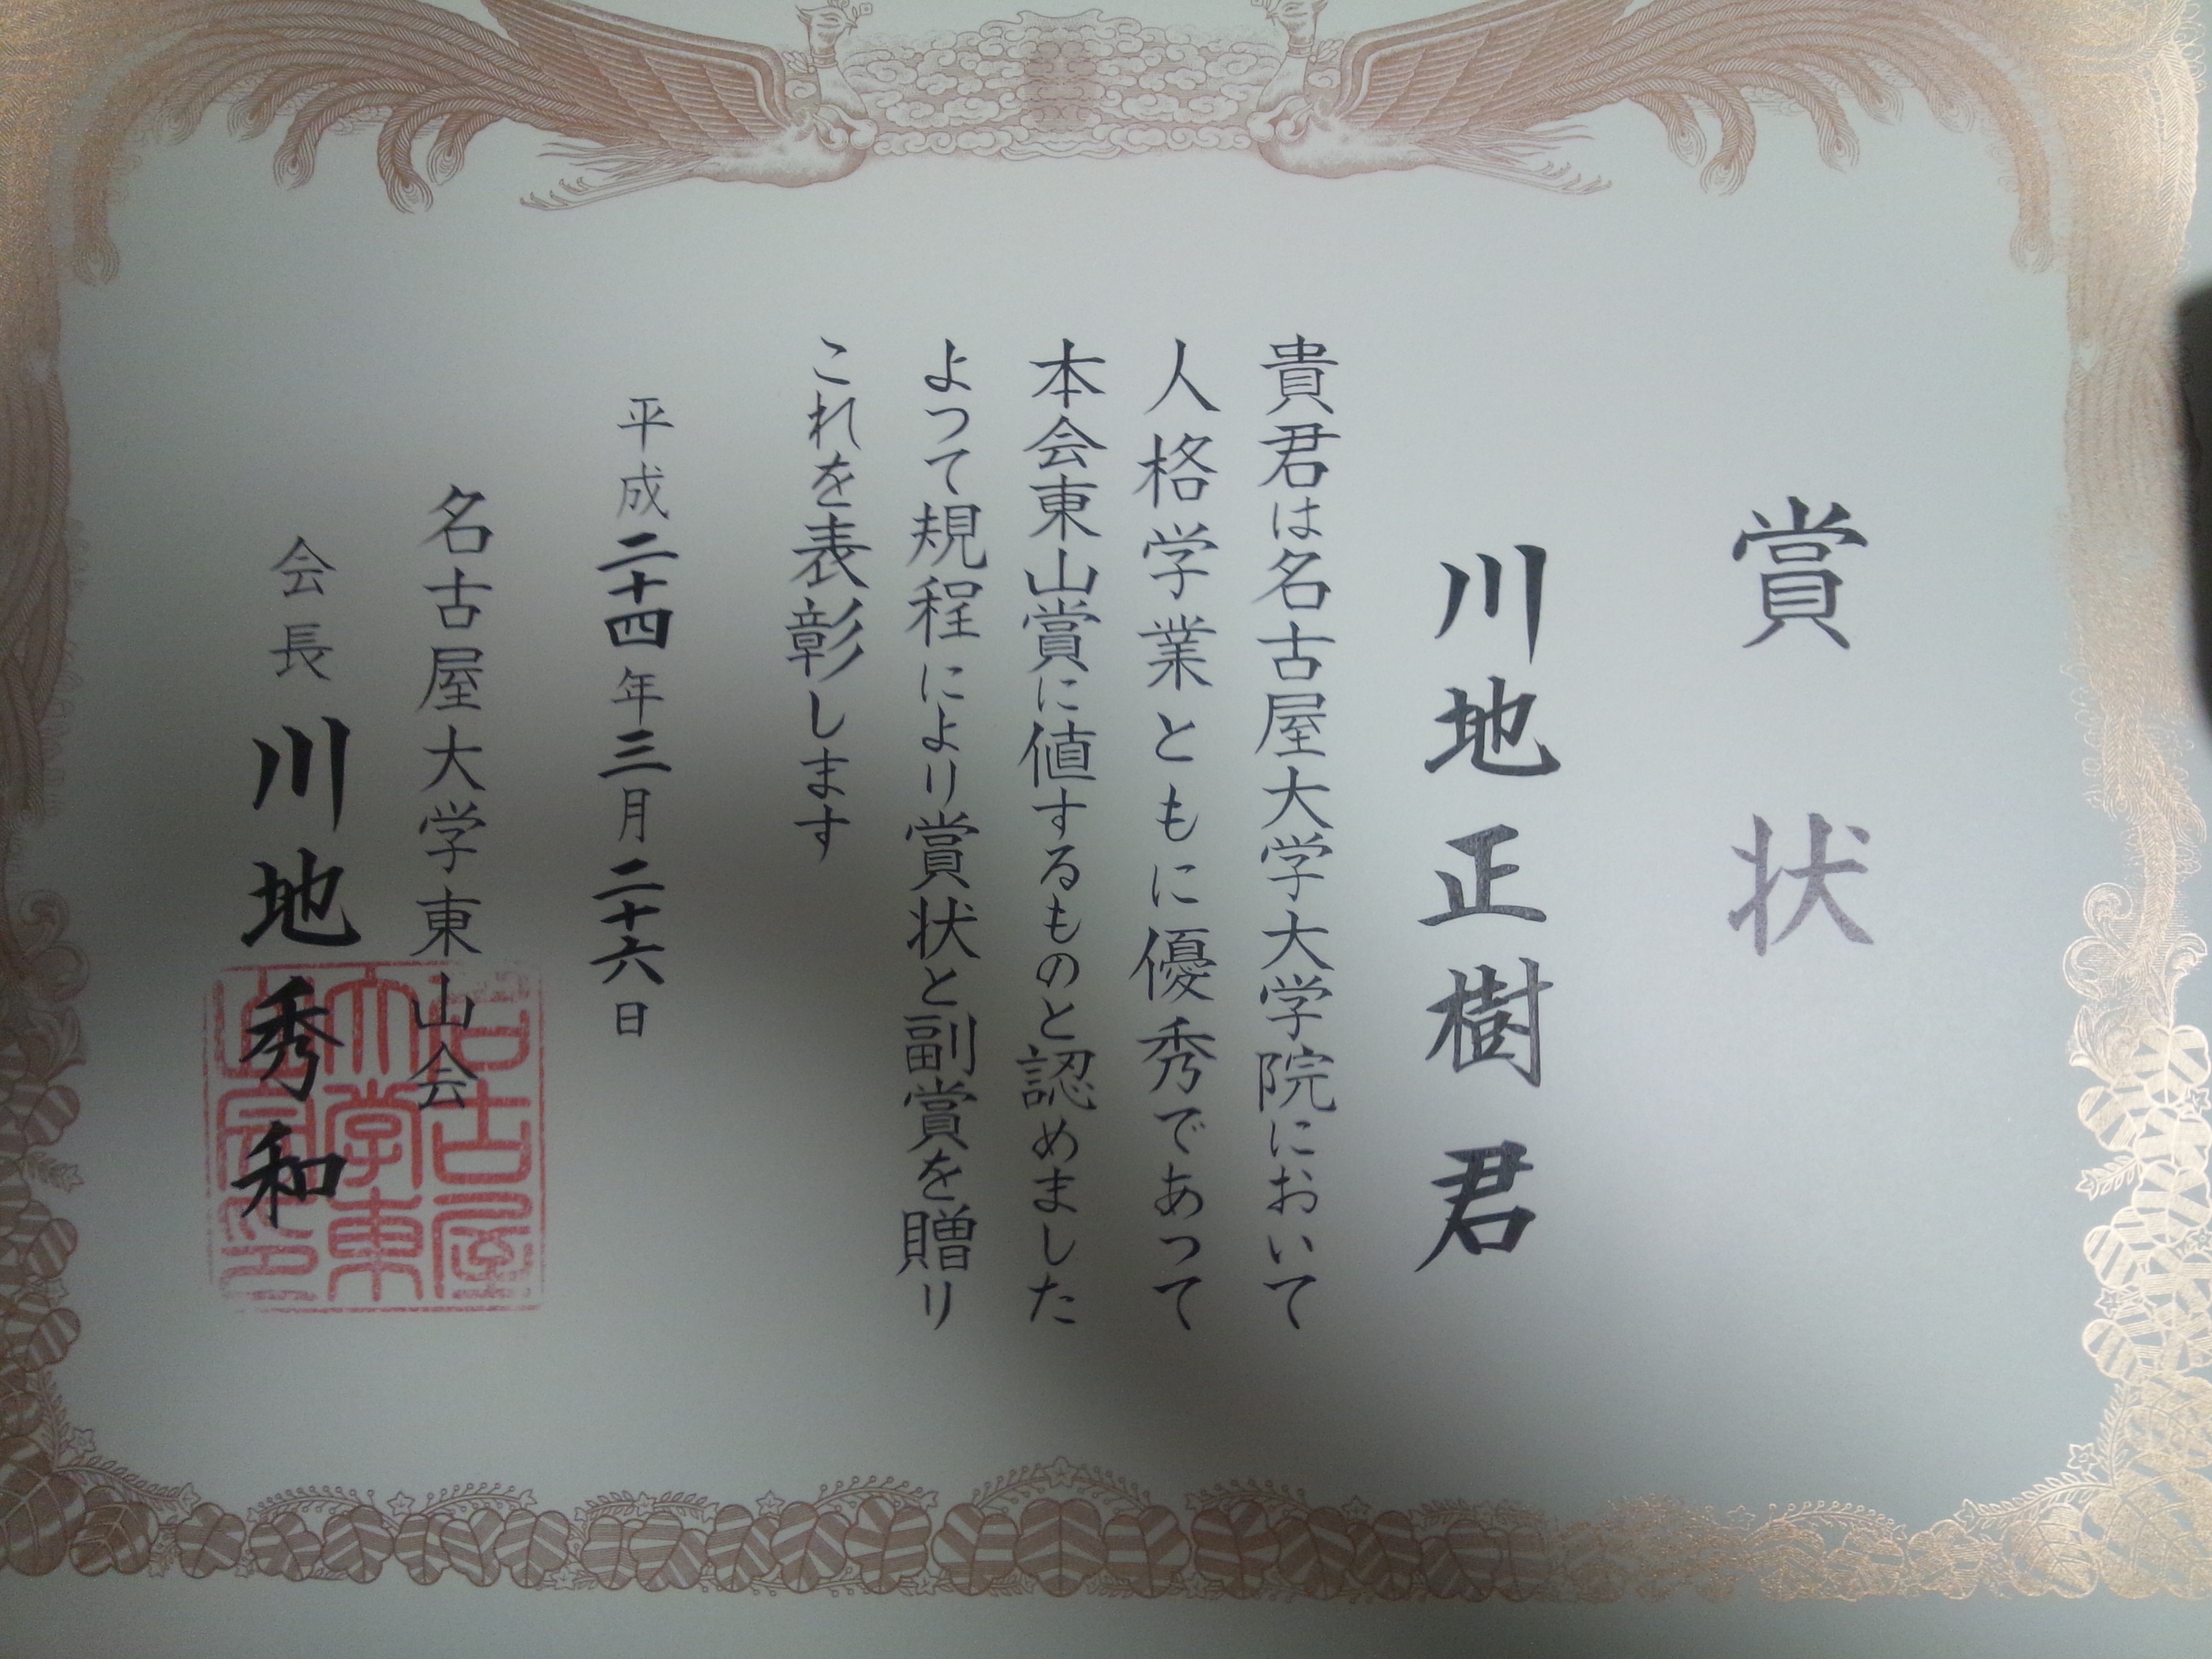 賞状
川地正樹君
貴君は名古屋大学大学院において
人格学業ともに優秀であって
本会東山賞に値するものと認めました
よつて規程により賞状と副賞を贈り
これを表彰します
平成二十四年三月二十六日
名古屋大学東山会
会長 川地秀和
名古屋
大学東
山会印